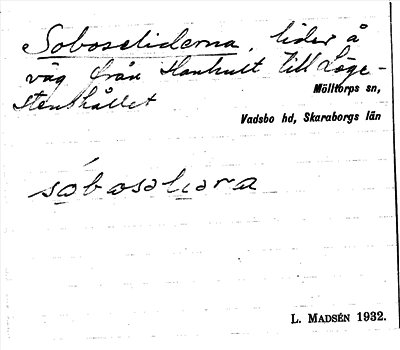 Soboseliderna, lider å
väg från Hankult till Löge-
stenshållet
Mölltorps sn,
Vadsbo hd, Skaraborgs län
sobosəlıəra
L. MADSÉN 1932.